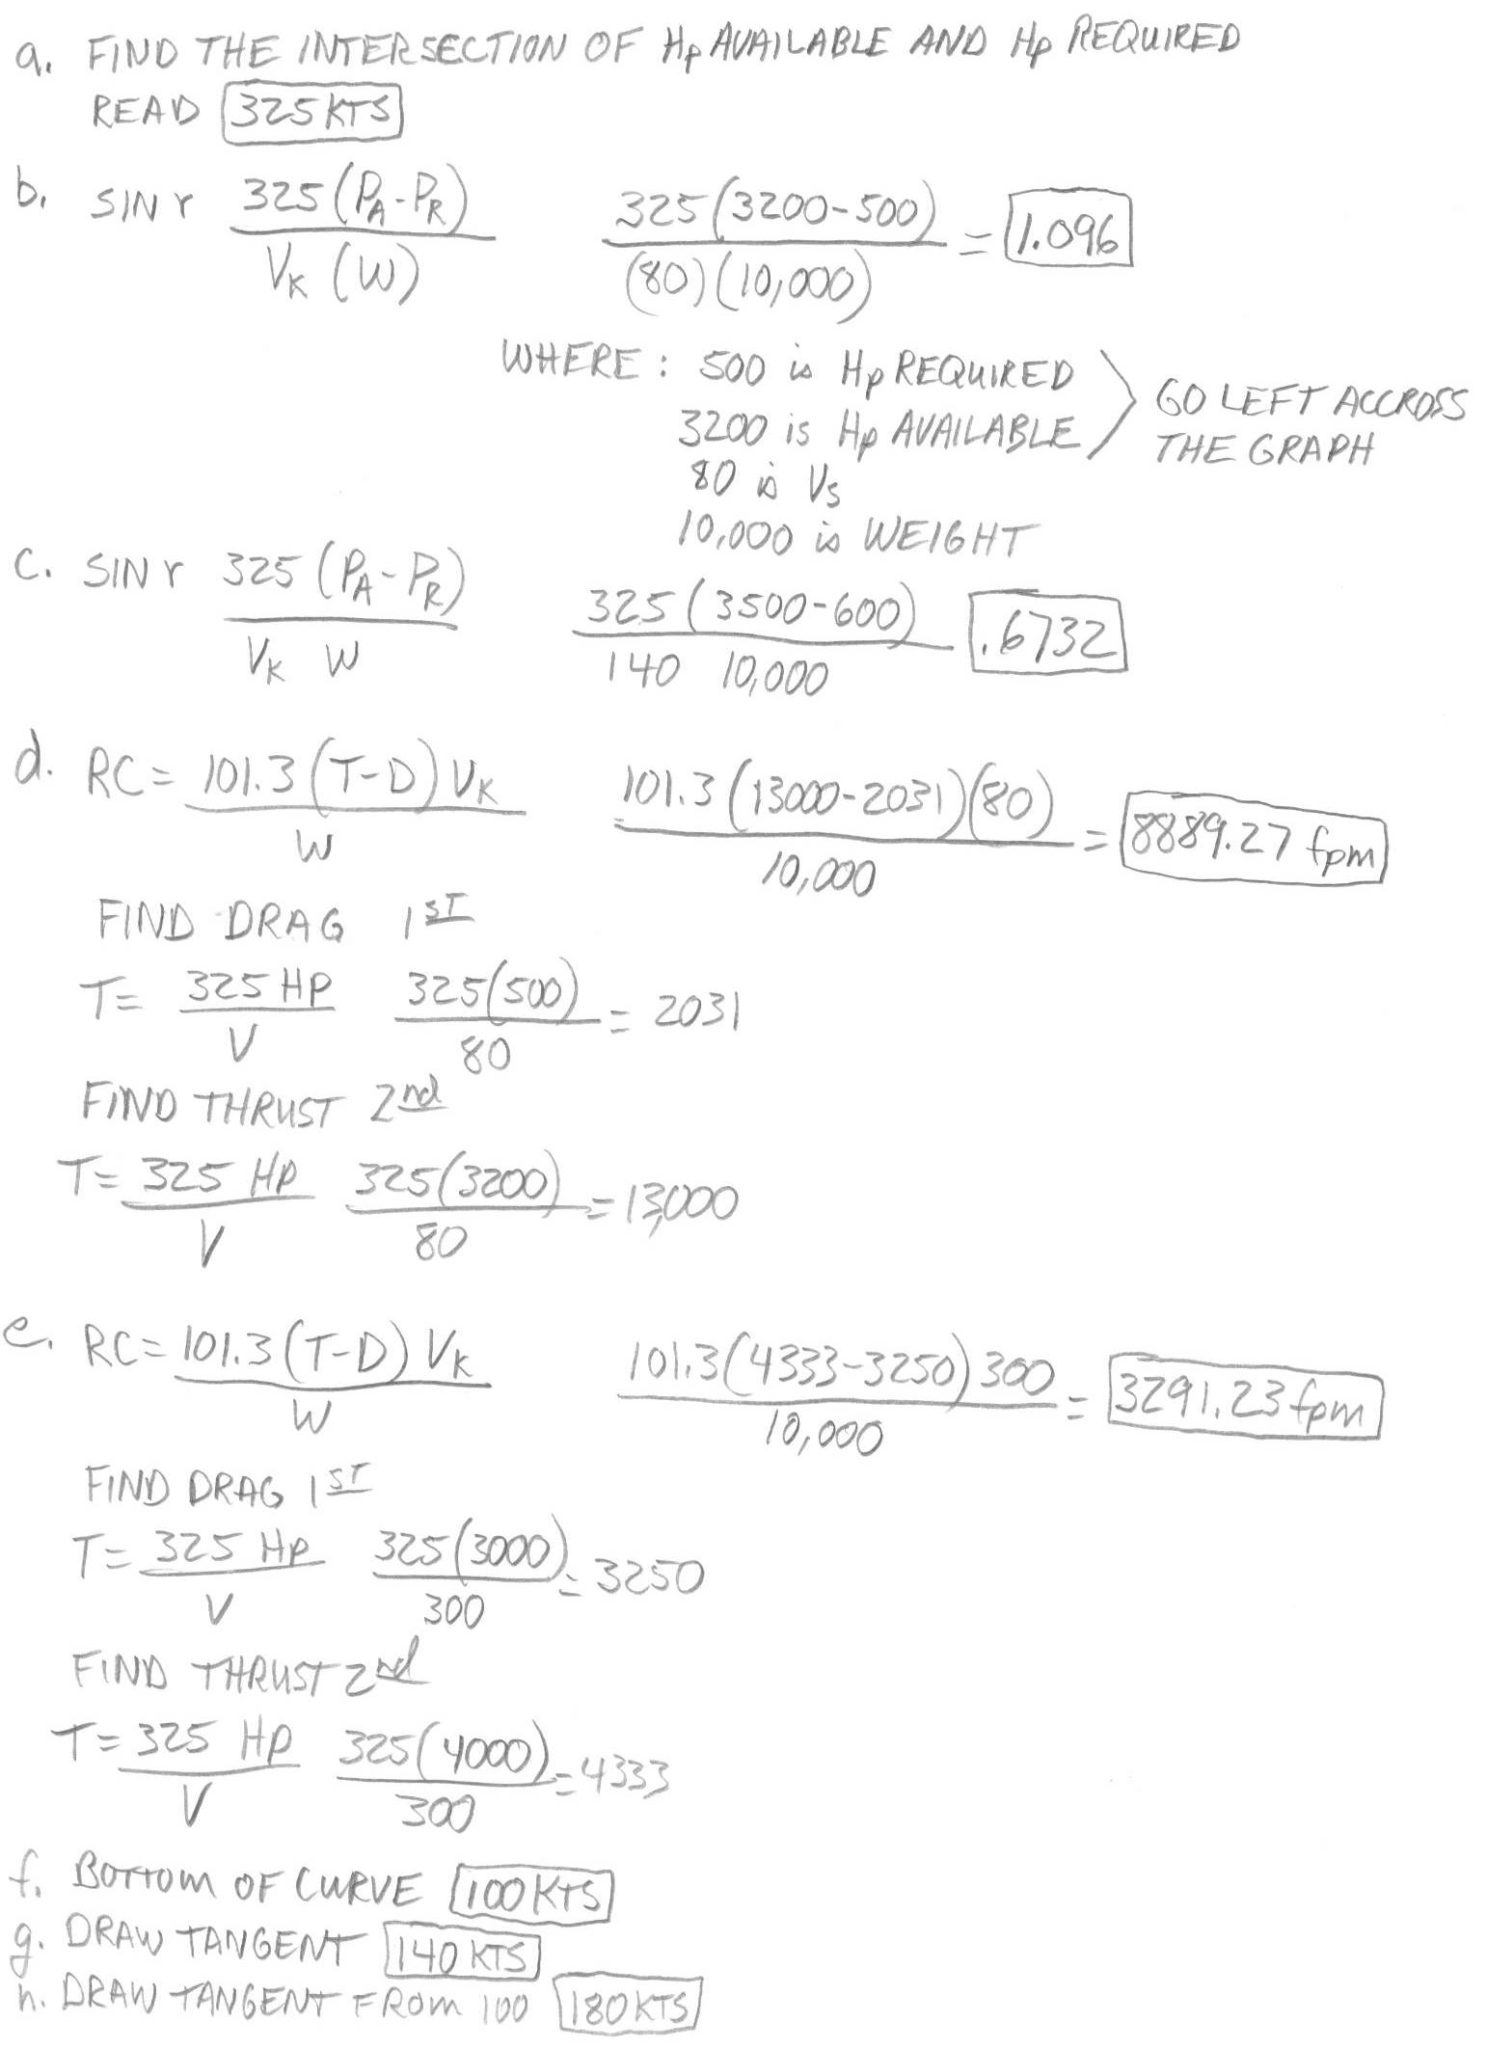 a. FIND THE INTERSECTION OF Hp AVAILABLE AND Hp REQUIRED
READ 325 KTS
b. SIN γ 325 (PA-PR) / VK (W) 325 (3200-500) / (80)(10,000) = 1.096
WHERE: 500 is Hp REQUIRED
3200 is Hp AVAILABLE
GO LEFT ACCROSS
THE GRAPH
80 is Vs
10,000 is WEIGHT
c. SIN γ 325 (PA-PR) / VK W 325 (3500-600) / 140 10,000 .6732
d. RC = 101.3 (T-D) VK / W = 101.3 (13000-2031)(80) / 10,000 = 8889.27 fpm
FIND DRAG 1ST
T = 325 HP / V 325(500) / 80 = 2031
FIND THRUST 2nd
T = 325 HP / V 325(3200) / 80 = 13,000
e. RC = 101.3 (T-D) VK / W 101.3 (4333-3250) 300 / 10,000 = 3291.23 fpm
FIND DRAG 1ST
T = 325 HP / V 325(3000) / 300 = 3250
FIND THRUST 2nd
T = 325 HP / V 325(4000) / 300 = 4333
f. BOTTOM OF CURVE 100 KTS
g. DRAW TANGENT 140 KTS
h. DRAW TANGENT FROM 100 180 KTS